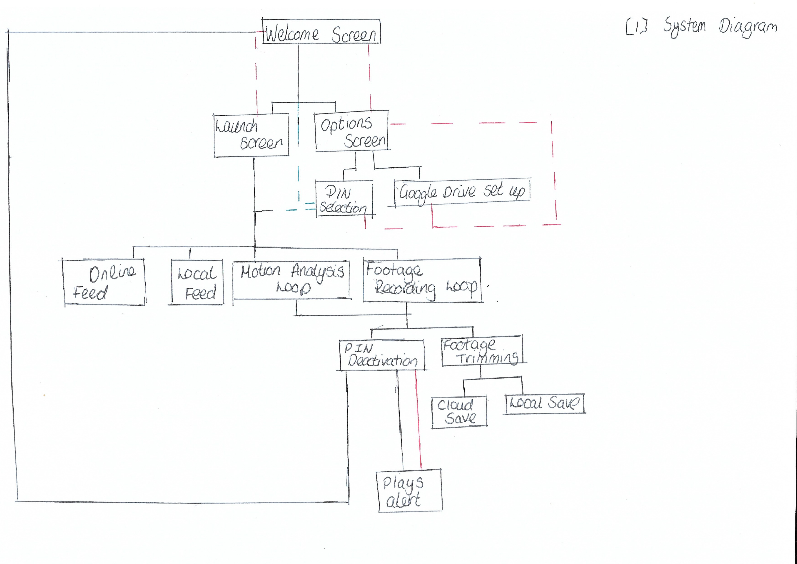 [1] System Diagram
Welcome Screen
Launch
Screen
Options
Screen
PIN
Selection
Google Drive set up
Online
Feed
Local
Feed
Motion Analysis
Loop
Footage
Recording Loop
PIN
Deactivation
Footage
Trimming
Cloud
Save
Local Save
Plays
alert